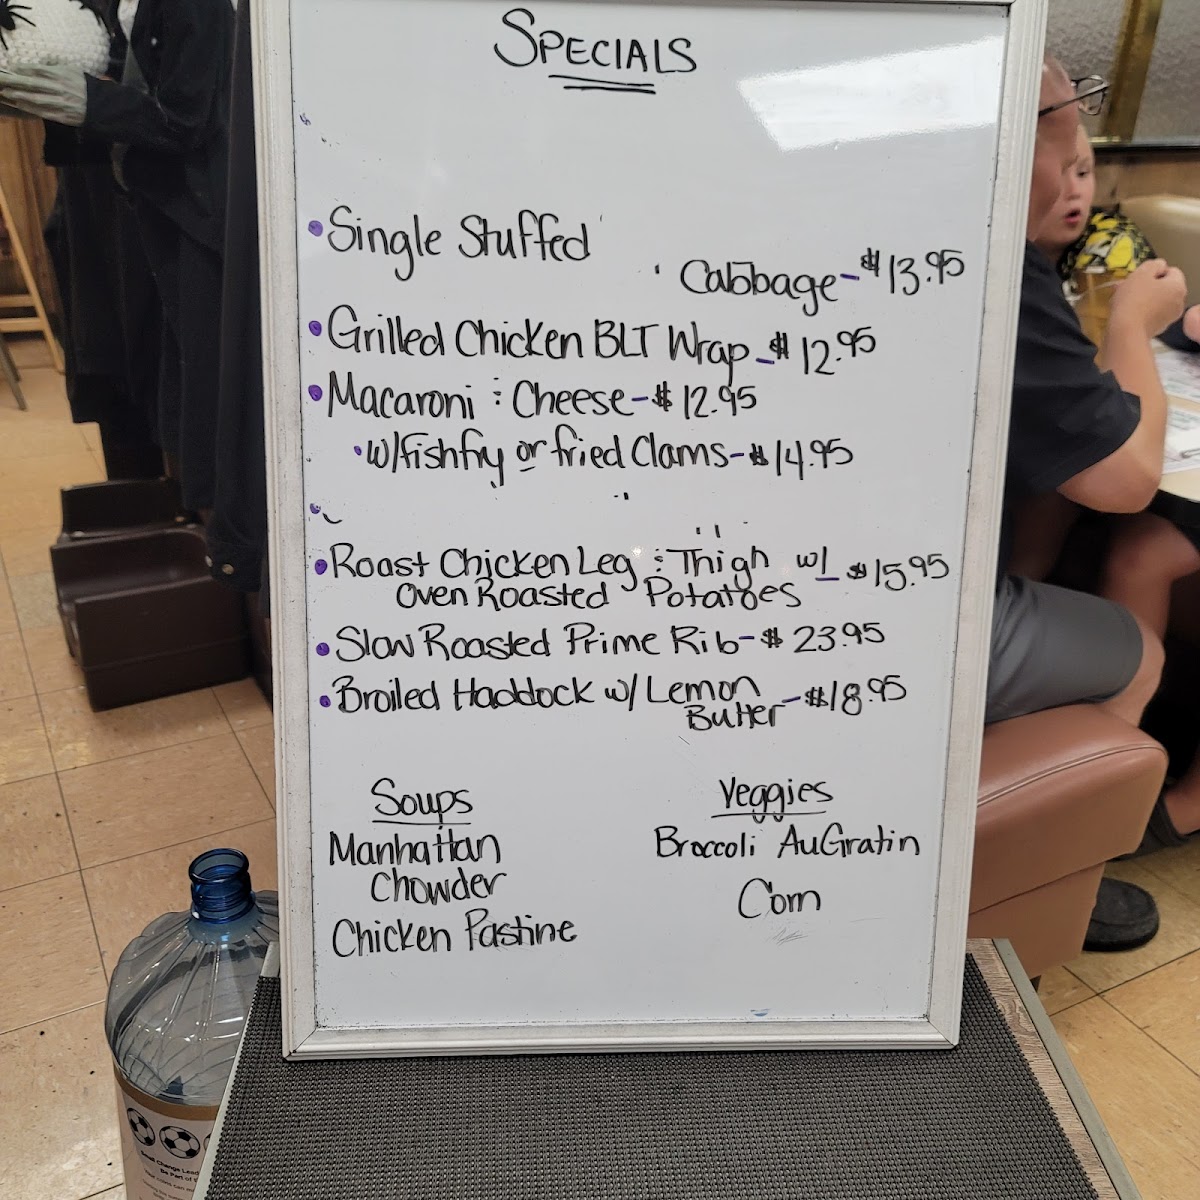 SPECIALS
• Single Stuffed
Cabbage - $13.95
• Grilled Chicken BLT Wrap - $12.95
• Macaroni & Cheese - $12.95
• w/fishfry or fried Clams - $14.95
• Roast Chicken Leg & Thigh w/ $15.95
Oven Roasted Potatoes
• Slow Roasted Prime Rib - $23.95
• Broiled Haddock w/ Lemon - $18.95
Butter
Soups
Manhattan
Chowder
Chicken Pastine
Veggies
Broccoli AuGratin
Corn